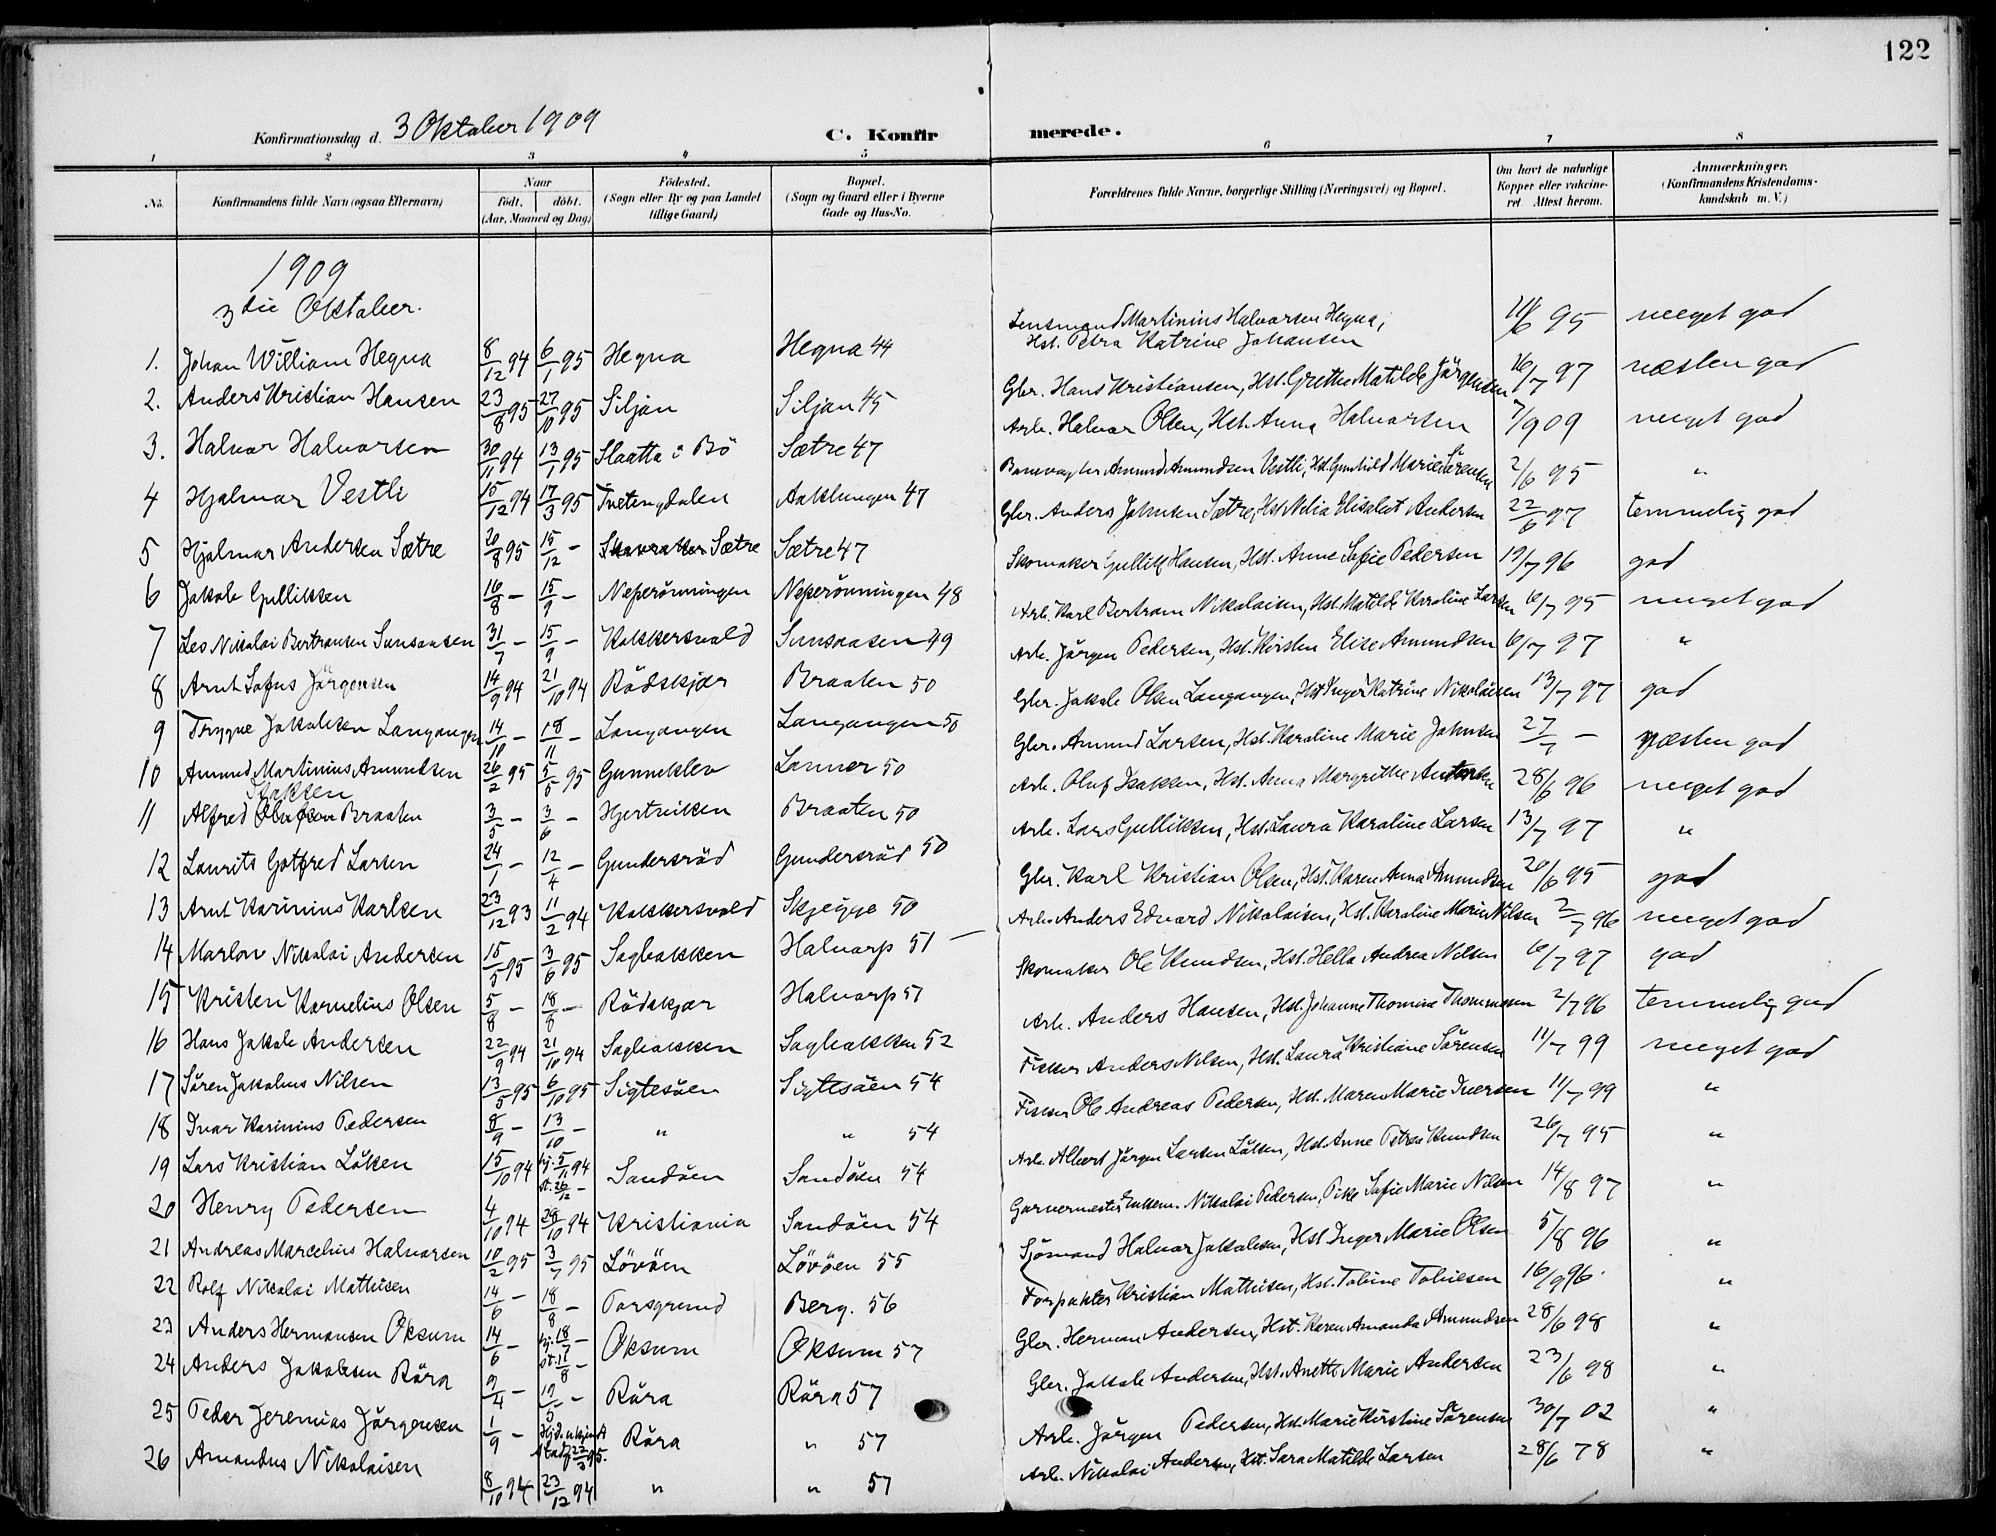 122
Konfirmationsdag d. 3 Oktober 1909
C. Konfirmerede.
1 2 3 4 5 6 7 8
No. | Konfirmandens fulde Navn (ogsaa Efternavn) | Naar født. døbt. (Aar, Maaned og Dag) | Födested. (Sogn eller By og paa Landet tillige Gaard) | Bopæl. (Sogn og Gaard eller i Byerne Gade og Hus-No. | Forældrenes fulde Navne, borgerlige Stilling (Næringsvei) og Bopæl. | Om havt de naturlige Kopper eller vakcineret Attest herom. | Anmærkninger. (Konfirmandens Kristendomskundskab m. V.)
1909
3die Oktober.
1. Johan William Hegna | 8/12 94 | 6/1 95 | Hegna | Hegna 44 | Lensmand Martinius Halvorsen Hegna, Hst. Petra Katrine Johansen | 95 | meget god
2. Anders Kristian Hansen | 23/8 95 | 27/10 95 | Siljan | Siljan 45 | Gbr. Hans Kristiansen, Hst. Grethe Matilde Jörgensen | 16/7 97 | næsten god
3. Halvor Halvorsen | 30/11 94 | 13/1 95 | Slaatta i Bö | Sætre 47 | Arb. Halvor Olsen, Hst. Anna Halvorsen | 7/9 09 | meget god
4 Hjalmar Vestli | 15/12 94 | 17/3 95 | Tvetengdalen | Aaklungen 47 | Banevogter Amund Amundsen Vestli, Hst. Gunhild Marie Sörensen | 2/6 95 | "
5 Hjalmar Andersen Sætre | 20/8 95 | 15/12 - | Sætre | Sætre 47 | Gbr. Anders Johnsen Sætre, Hst. Nilia Elisabet Andersen | 22/6 97 | temmelig god
6 Jakob Gulliksen | 16/8 - | 15/9 - | Neperönningen | Neperönningen 48 | Skomaker Gullik Hansen, Hst. Anne Sofie Pedersen | 19/7 96 | god
7 Leo Nikolai Bertransen Sunsaasen | 31/7 - | 15/9 - | Kokkersvold | Sunsaasen 49 | Arb. Karl Bertram Nikolaisen, Hst. Matilde Karoline Larsen | 6/7 95 | meget god
8 Arnt Sofus Jörgensen | 14/9 94 | 21/10 94 | Rödskjær | Braaten 50 | Arb. Jörgen Pedersen, Hst. Kirsten Elise Amundsen | 6/7 97 | "
9 Trygve Jakobsen Langangen | 14/10 - | 18/11 - | Langangen | Langangen 50 | Gbr. Jakob Olsen Langangen, Hst. Inger Katrine Nikolaisen | 13/7 97 | god
10 Amund Martinius Amundsen | 26/2 95 | 5/5 95 | Gunneklev | Lanner 50 | Gbr. Amund Larsen, Hst. Karoline Marie Johnsen | 27/7 - | næsten god
11 Alfred Isaksen Braaten | 3/5 - | 3/6 - | Hjertviken | Braaten 50 | Arb. Oluf Isaksen, Hst. Anna Margrethe Antonsen | 28/6 96 | meget god
12 Laurits Gotfred Larsen | 24/1 - | 12/4 - | Gundersröd | Gundersröd 50 | Arb. Lars Gulliksen, Hst. Laura Karoline Larsen | 13/7 97 | "
13 Arnt Karinius Karlsen | 23/12 93 | 11/2 94 | Kokkersvold | Skjegge 50 | Gbr. Karl Kristian Olsen, Hst. Karen Anna Amundsen | 26/6 95 | god
14 Marlow Nikolai Andersen | 15/5 95 | 3/6 95 | Sagbakken | Halvarp 51 - | Arb. Anders Edvard Nikolaisen, Hst. Karoline Marie Nilsen | 2/7 96 | meget god
15 Kristen Kornelius Olsen | 5/8 - | 18/8 - | Rödskjær | Halvarp 51 | Skomaker Ole Knudsen, Hst. Hella Andrea Nilsen | 6/7 97 | god
16 Hans Jakob Andersen | 22/9 94 | 21/10 94 | Sagbakken | Sagbakken 52 | Arb. Anders Hansen, Hst. Johanne Thomine Thommesen | 2/7 96 | temmelig god
17 Sören Jakobus Nilsen | 13/5 95 | 6/10 95 | Sigtesöen | Sigtesöen 54 | Fisker Anders Nilsen, Hst. Laura Kristiane Sörensen | 11/7 99 | meget god
18 Ivar Karinius Pedersen | 8/9 - | 13/10 - | " | " 54 | Fisker Ole Andreas Pedersen, Hst. Maren Marie Iversen | 11/7 99 | "
19 Lars Kristian Löksen | 15/10 94 | hj. 5/11 94 st. 26/12 - | Sandöen | Sandöen 54 | Arb. Albert Jörgen Larsen Löksen, Hst. Anne Petrea Knudsen | 26/7 95 | "
20 Henry Pedersen | 4/10 94 | 28/10 94 | Kristiania | Sandöen 54 | Garvermester Enkem. Nikolai Pedersen, Pike Sofie Marie Nilsen | 14/8 97 | "
21 Andreas Marcelius Halvorsen | 10/2 95 | 3/7 95 | Lövöen | Lövöen 55 | Sjömand Halvor Jakobsen, Hst. Inger Marie Olsen | 5/8 96 | "
22 Rolf Nikolai Mathisen | 14/6 - | 18/8 - | Porsgrund | Berg. 56 | Forpakter Kristian Mathisen, Hst. Tobine Tobiesen | 16/9 96. | "
23 Anders Hermansen Oksum | 14/6 - | hj. 18/7 - st. 11/8 - | Oksum | Oksum 57 | Gbr. Herman Andersen, Hst. Karen Amanda Amundsen | 28/6 98 | "
24 Anders Jakobsen Röra | 9/4 - | 19/5 - | Röra | Röra 57 | Gbr. Jakob Andersen, Hst. Anette Marie Andersen | 23/6 98 | "
25 Peder Jeremias Jörgensen | 1/9 - | Hjd. ukjendt Stadf. 22/3 95. | Röra | " 57 | Arb. Jörgen Pedersen, Hst. Marie Kirstine Sörensen | 30/7 02 | "
26 Amandus Nikolaisen | 8/10 94 | 23/12 94 | " | " 57 | Arb. Nikolai Andersen, Hst. Sara Matilde Larsen | 28/6 78 | "